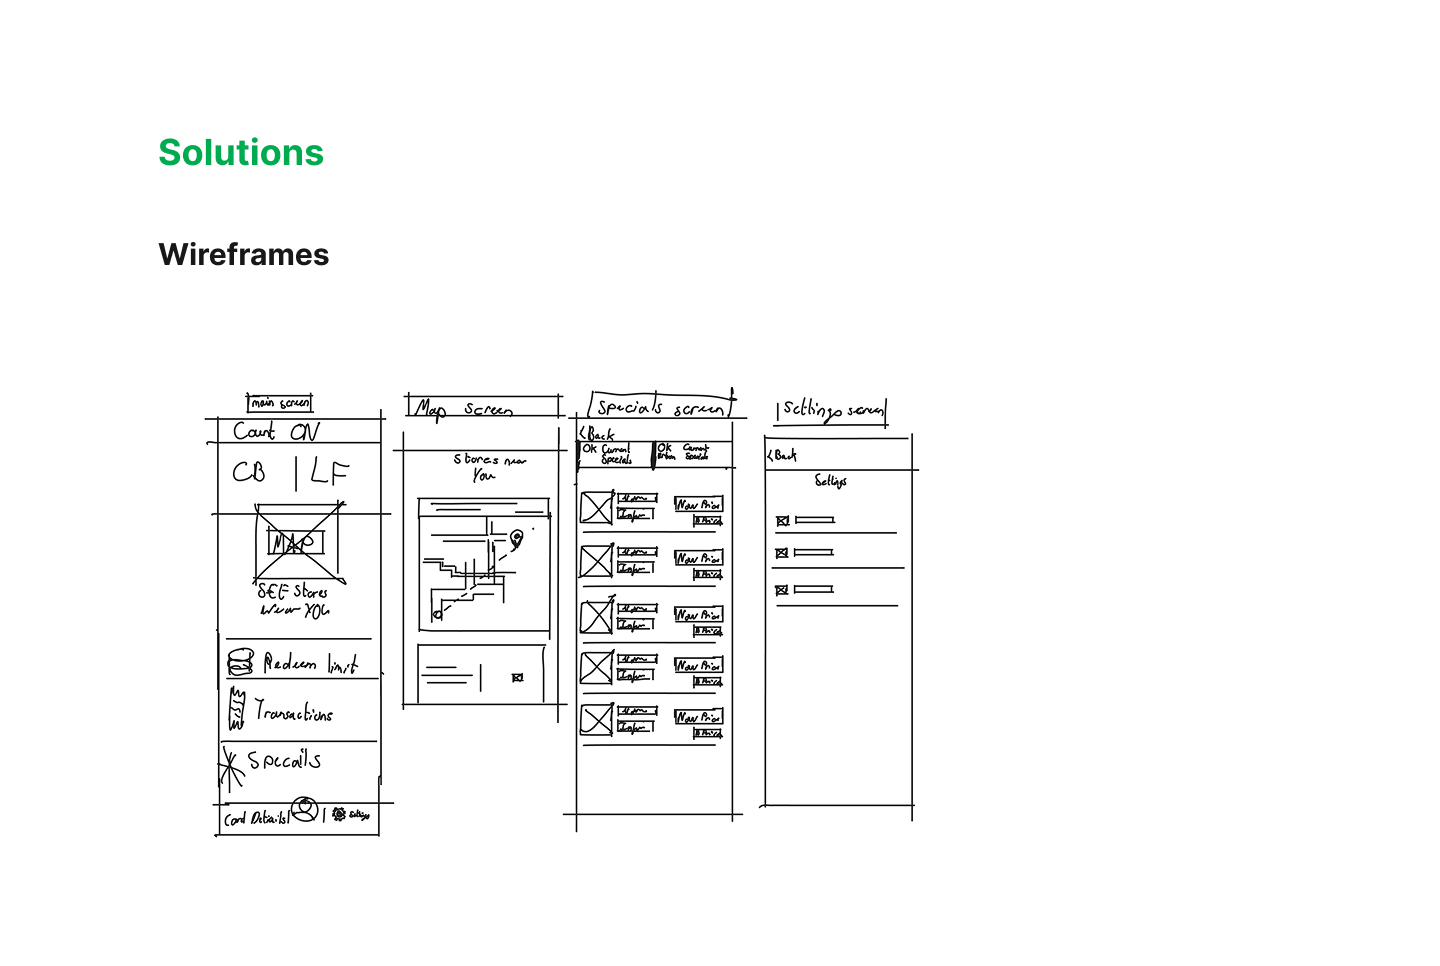 Solutions
Wireframes
main screen
Count ON
CB | LF
MAP
SEE Stores
near YOU
Redeem limit
Transactions
Specails
Card Detials |
| Settings
Map screen
Stores near
You
Specials screen
<Back
Ok Current
Specials
Ok Current
Urban Specials
Name
Infor
Now Price
Name
Infor
Now Price
Name
Infor
Now Price
Name
Infor
Now Price
Name
Infor
Now Price
Settings screen
<Back
Settings